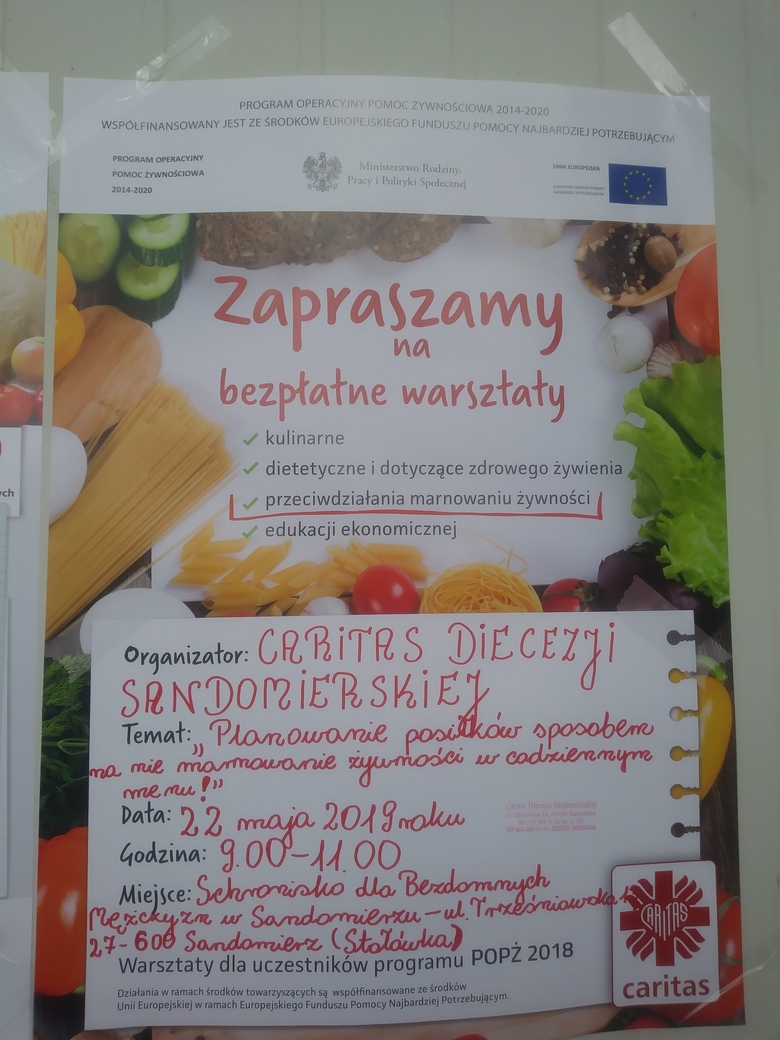 PROGRAM OPERACYJNY POMOC ŻYWNOŚCIOWA 2014-2020
WSPÓŁFINANSOWANY JEST ZE ŚRODKÓW EUROPEJSKIEGO FUNDUSZU POMOCY NAJBARDZIEJ POTRZEBUJĄCYM
PROGRAM OPERACYJNY
POMOC ŻYWNOŚCIOWA
2014-2020
Ministerstwo Rodziny,
Pracy i Polityki Społecznej
UNIA EUROPEJSKA
EUROPEJSKI FUNDUSZ POMOCY
NAJBARDZIEJ POTRZEBUJĄCYM
Zapraszamy
na
bezpłatne warsztaty
kulinarne
dietetyczne i dotyczące zdrowego żywienia
przeciwdziałania marnowaniu żywności
edukacji ekonomicznej
ych
Organizator: CARITAS DIECEZJI
SANDOMIERSKIEJ
Temat: „Planowanie posiłków sposobem
na nie marnowanie żywności w codziennym
menu!"
Data: 22 maja 2019 roku
Caritas Diecezji Sandomierskiej
Godzina: 9.00-11.00
Miejsce: Schronisko dla Bezdomnych
Mężczyzn w Sandomierzu - ul. Trześniowska
27-600 Sandomierz (Stołówka)
Warsztaty dla uczestników programu POPŻ 2018
Działania w ramach środków towarzyszących są współfinansowane ze środków
Unii Europejskiej w ramach Europejskiego Funduszu Pomocy Najbardziej Potrzebującym.
CARITAS
caritas